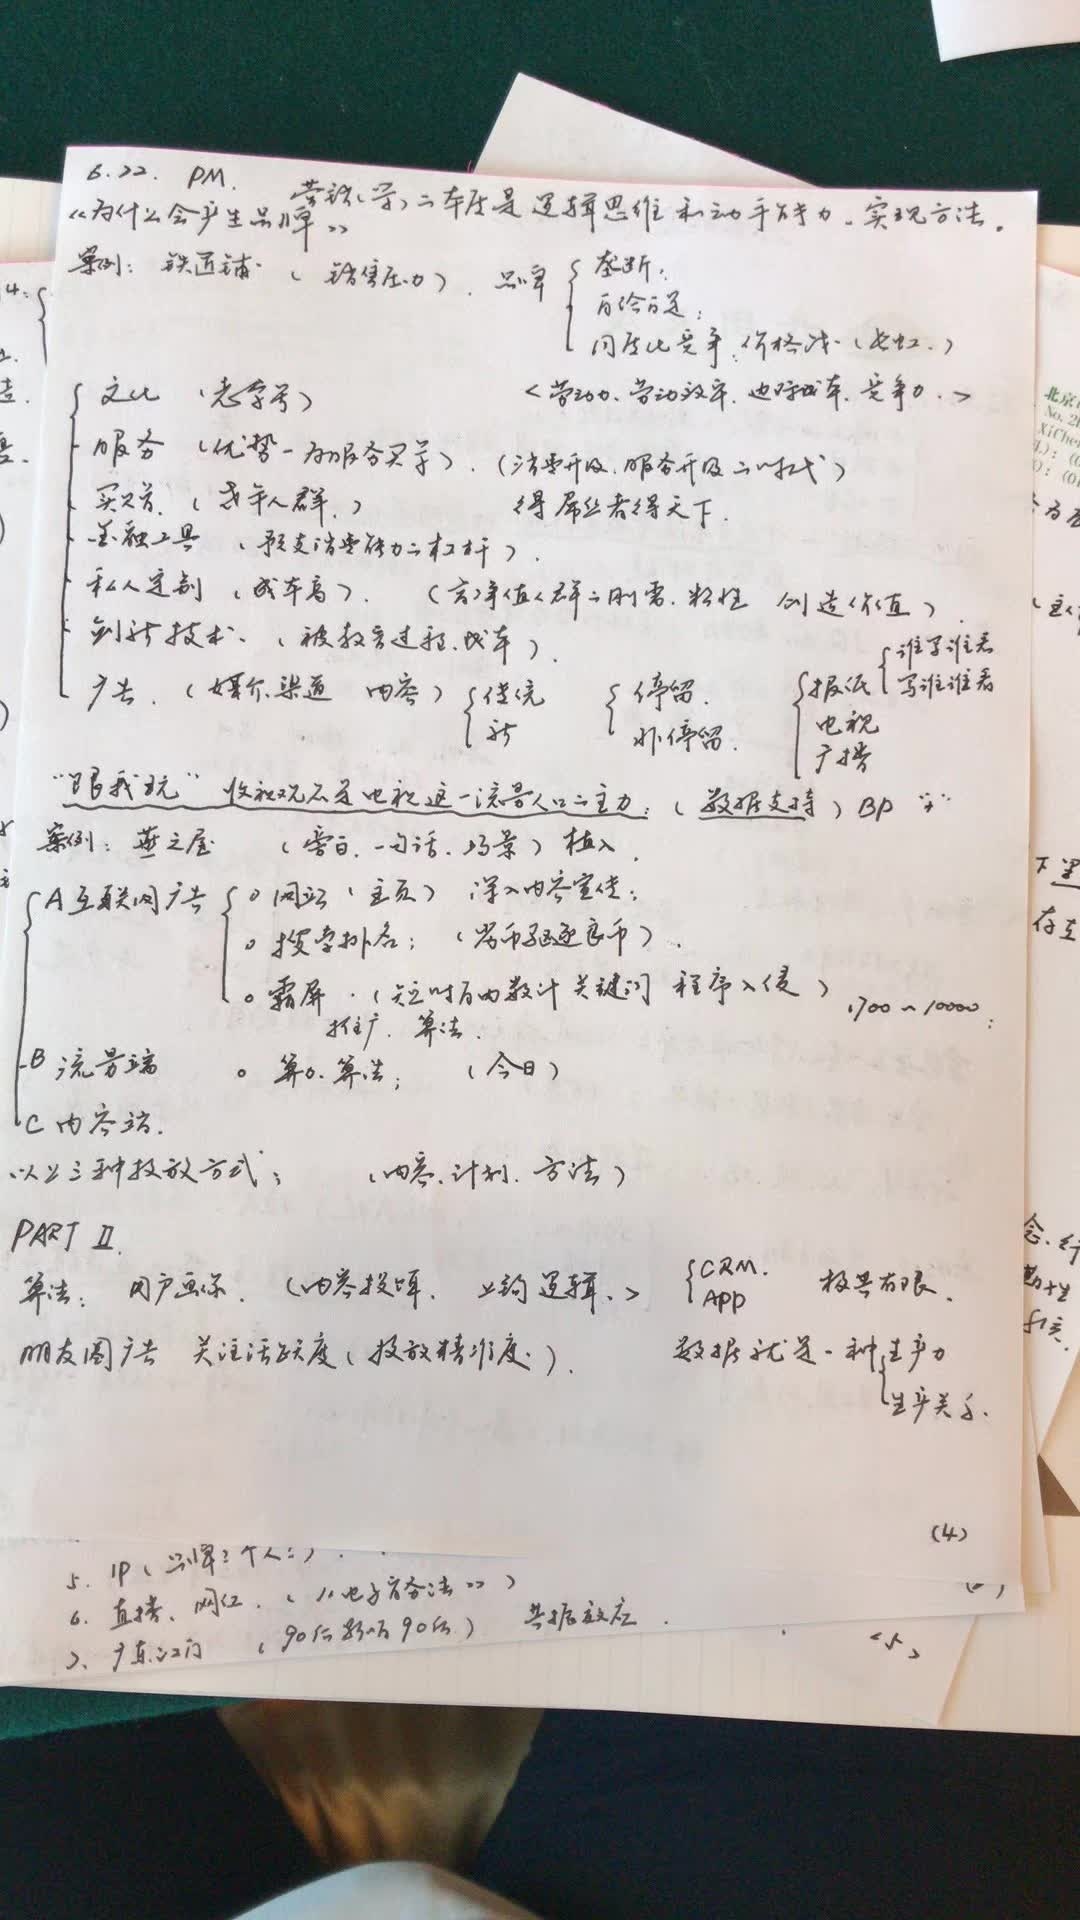 6.22. PM.
营销(学)二本质是逻辑思维和动手能力。实现方法。
《为什么会产生品牌》
案例：铁匠铺 (销售压力). 品牌 { 垄断；
自给自足；
同质化竞争、价格战 (长虹.)
<劳动力、劳动效率、边际成本、竞争力.>
文化 (老字号)
服务 (优势—为服务买单). (消费升级、服务升级二时代)
买赠. (老年人群.) 得屌丝者得天下.
金融工具 (预支消费能力二杠杆).
私人定制 (成本高). (高净值人群二刚需、粘性 创造价值)
创新技术. (被教育过程、成本).
广告. (媒介、渠道 内容) { 传统 新 { 停留. 非停留. { 报纸 { 谁写谁看 写谁谁看
电视
广播
"跟我玩" 收视观众是电视这一流量入口二主力；(数据支持) BP
案例：燕之屋 (旁白、一句话、场景) 植入.
A 互联网广告 { 网站 (主页) 深入内容宣传；
搜索排名；(劣币驱逐良币).
霸屏. (短时间内数计关键词 程序入侵) 1700~10000；
推广、算法.
B 流量端 算力、算法；(今日)
C 内容端.
以上三种投放方式；(内容、计划、方法)
PART II.
算法；用户画像. (内容投喂、上钩逻辑.) { CRM. APP 极其有限.
朋友圈广告 关注活跃度 (投放精准度.). 数据就是一种 { 生产力
生产关系.
(4)
5. IP (品牌二个人二)
6. 直播、网红. (《电子商务法》)
7. (90后影响90后) 共振效应.
<5>
北京
No. 2
XiChe